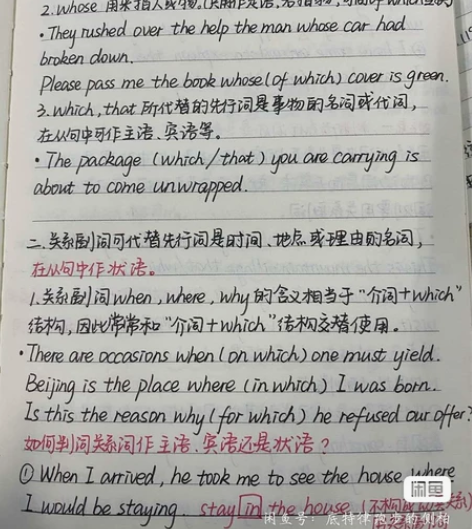 2.whose 用来指人或物,(只用作定语,若指物,可同of which互换)
·They rushed over the help the man whose car had
broken down.
Please pass me the book whose(of which) cover is green.
3.which,that所代替的先行词是事物的名词或代词,
在从句中可作主语、宾语等。
·The package (which/that) you are carrying is
about to come unwrapped.
二.关系副词可代替先行词是时间、地点或理由的名词,
在从句中作状语。
1.关系副词when,where,why的含义相当于“介词+which”
结构,因此常常和“介词+which”结构交替使用。
·There are occasions when(on which) one must yield.
Beijing is the place where(in which) I was born.
Is this the reason why(for which) he refused our offer?
如何判问关系词作主语、宾语还是状语?
①When I arrived, he took me to see the house where
I would be staying. stay in the house.
闲鱼